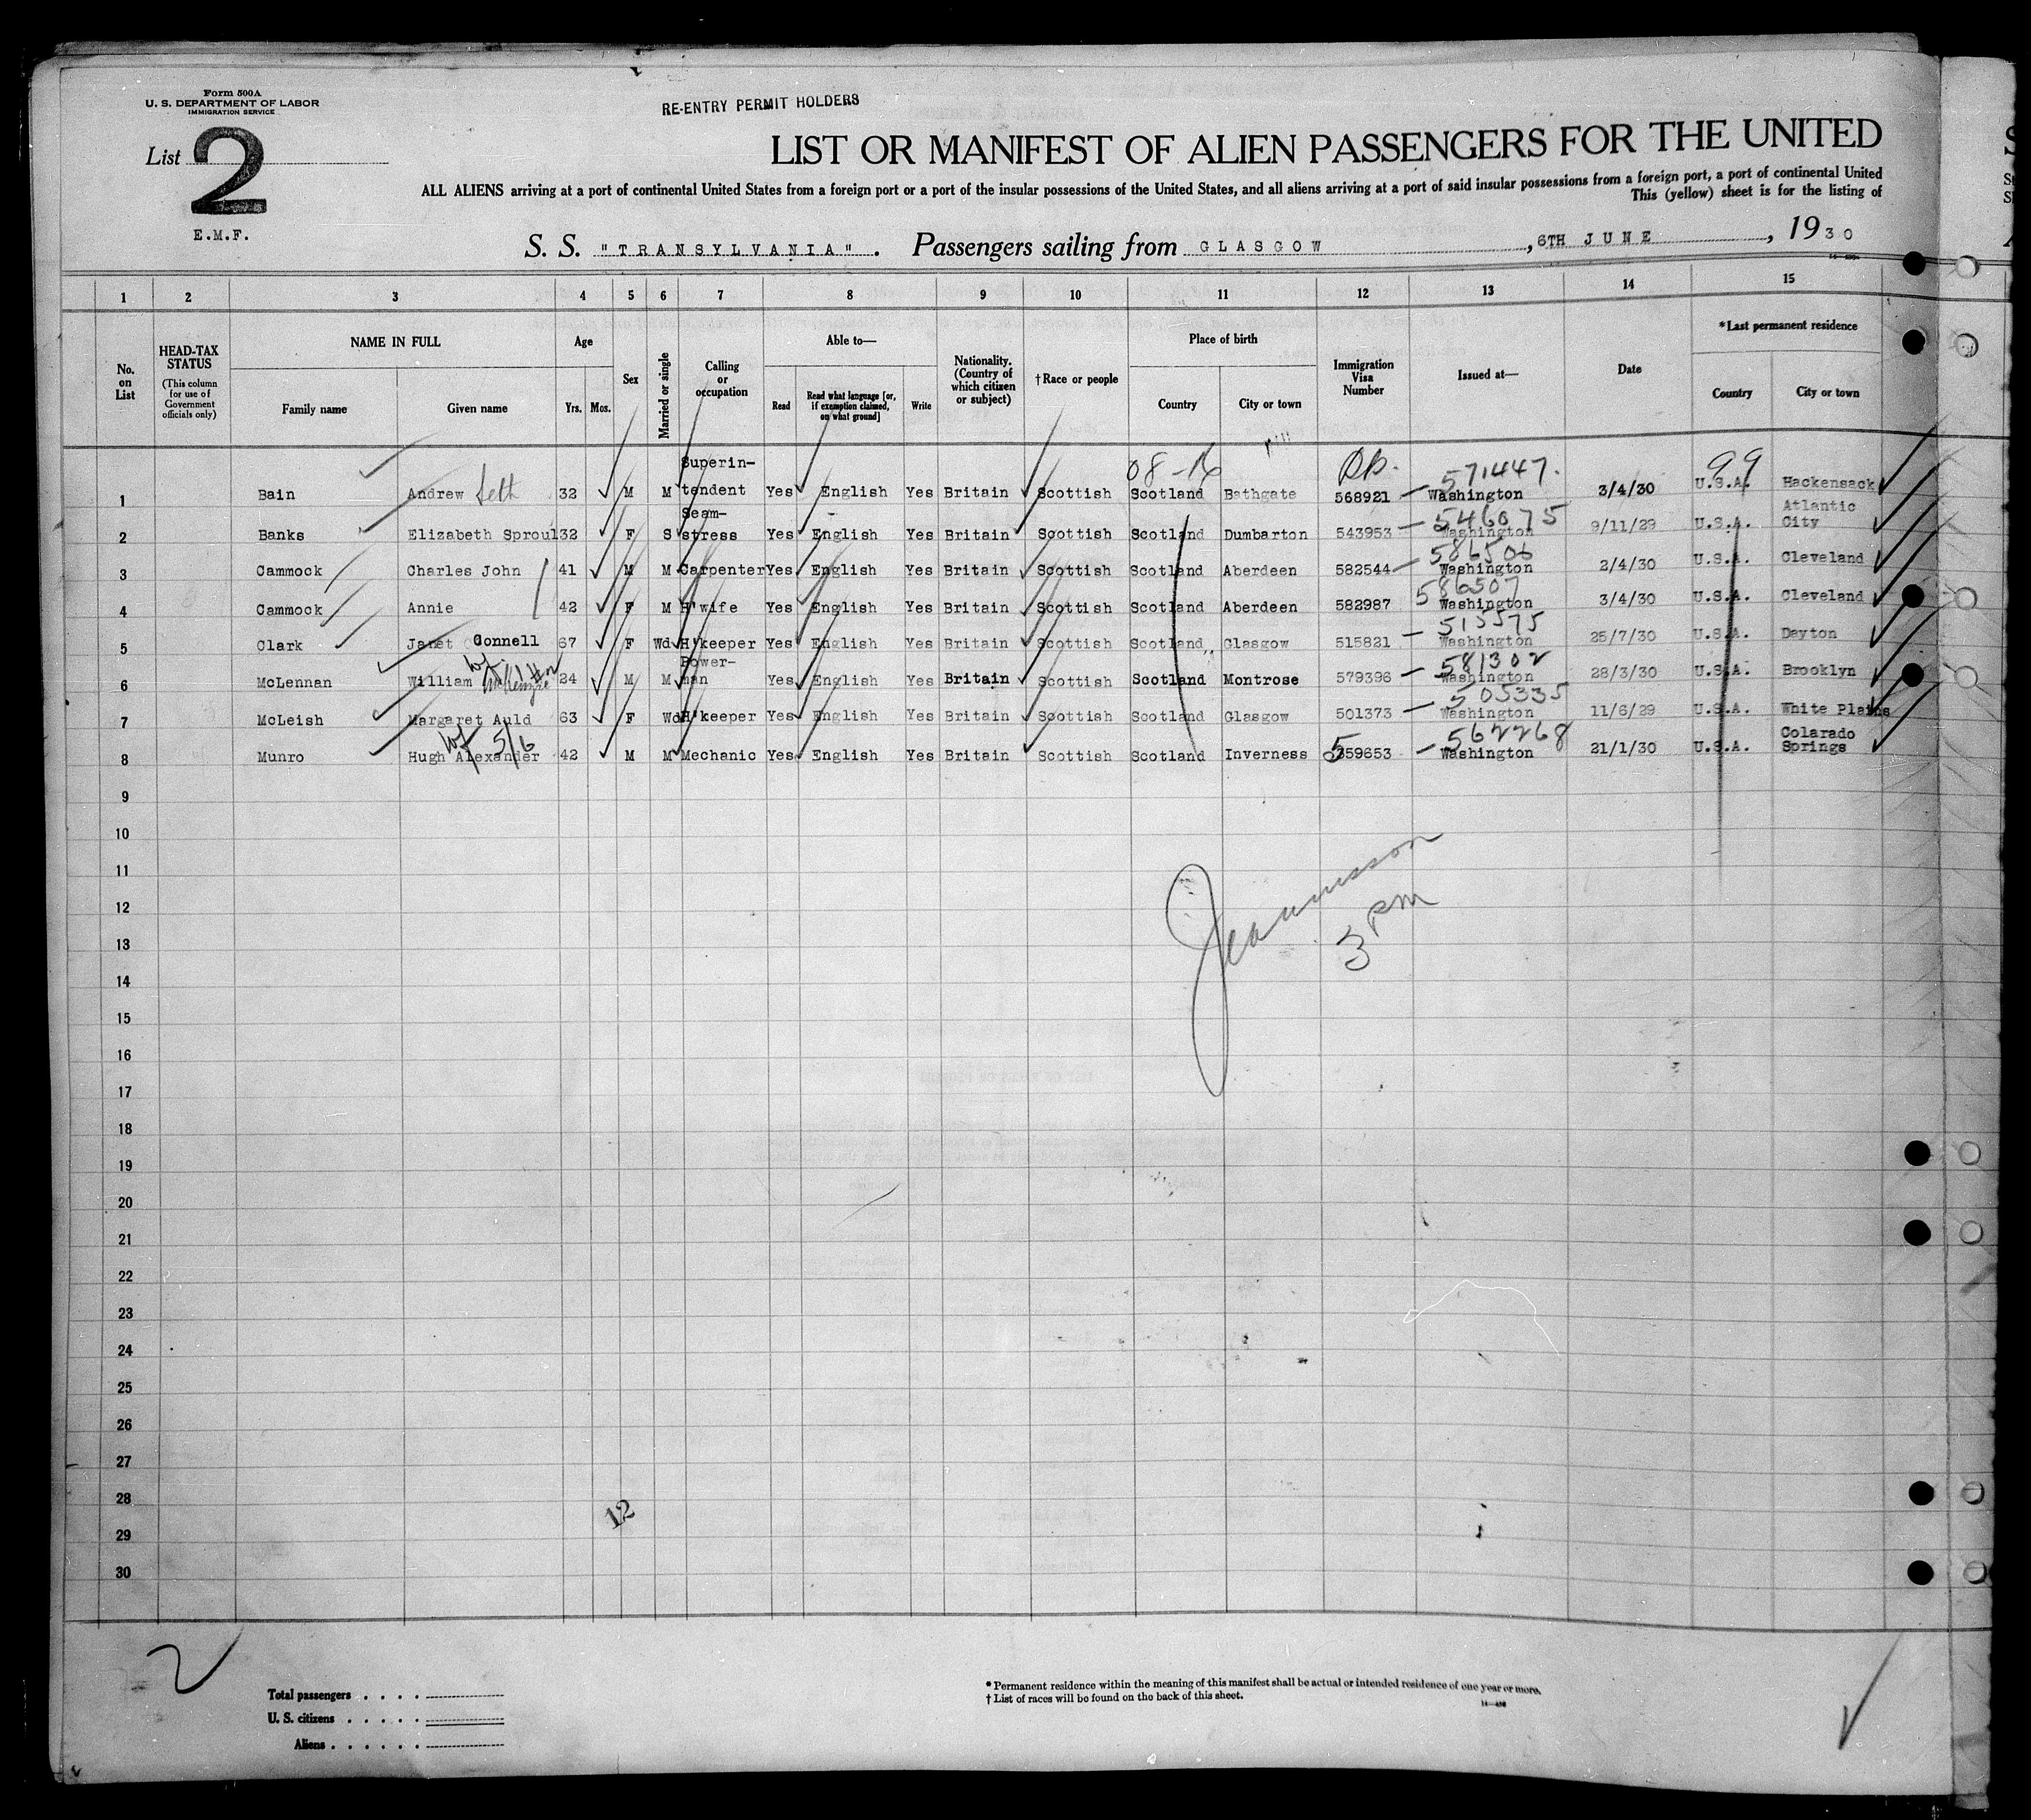 Form 500A
U. S. DEPARTMENT OF LABOR
IMMIGRATION SERVICE
RE-ENTRY PERMIT HOLDERS
List 2
E.M.F.
LIST OR MANIFEST OF ALIEN PASSENGERS FOR THE UNITED
ALL ALIENS arriving at a port of continental United States from a foreign port or a port of the insular possessions of the United States, and all aliens arriving at a port of said insular possessions from a foreign port, a port of continental United
This (yellow) sheet is for the listing of
S. S. "TRANSYLVANIA". Passengers sailing from GLASGOW, 6TH JUNE, 1930
1 2 3 4 5 6 7 8 9 10 11 12 13 14 15
No. on List
HEAD-TAX STATUS
(This column for use of Government officials only)
NAME IN FULL
Family name Given name
Age
Yrs. Mos.
Sex
Married or single
Calling or occupation
Able to—
Read Read what language [or, if exemption claimed, on what ground] Write
Nationality. (Country of which citizen or subject)
† Race or people
Place of birth
Country City or town
Immigration Visa Number
Issued at—
Date
*Last permanent residence
Country City or town
08-16 99
571447.
1 Bain Andrew 32 M M Superin-tendent Yes English Yes Britain Scottish Scotland Bathgate 568921 — Washington 3/4/30 U.S.A. Hackensack
546075
2 Banks Elizabeth Sproul 32 F S Seam-stress Yes English Yes Britain Scottish Scotland Dumbarton 543953 — Washington 9/11/29 U.S.A. Atlantic City
586506
3 Cammock Charles John 41 M M Carpenter Yes English Yes Britain Scottish Scotland Aberdeen 582544 — Washington 2/4/30 U.S.A. Cleveland
586507
4 Cammock Annie 42 F M H'wife Yes English Yes Britain Scottish Scotland Aberdeen 582987 Washington 3/4/30 U.S.A. Cleveland
515575
5 Clark Janet Connell 67 F Wd H'keeper Yes English Yes Britain Scottish Scotland Glasgow 515821 — Washington 25/7/30 U.S.A. Dayton
581302
6 McLennan William McKenzie 24 M M Power-man Yes English Yes Britain Scottish Scotland Montrose 579396 — Washington 28/3/30 U.S.A. Brooklyn
505335
7 McLeish Margaret Auld 63 F Wd H'keeper Yes English Yes Britain Scottish Scotland Glasgow 501373 — Washington 11/6/29 U.S.A. White Plains
5/6 562268
8 Munro Hugh Alexander 42 M M Mechanic Yes English Yes Britain Scottish Scotland Inverness 559653 — Washington 21/1/30 U.S.A. Colarado Springs
9
10
11
12
13
14
15
16
17
18
19
20
21
22
23
24
25
26
27
28
29
30
3 pm
12
2
Total passengers
U. S. citizens
Aliens
* Permanent residence within the meaning of this manifest shall be actual or intended residence of one year or more.
† List of races will be found on the back of this sheet.